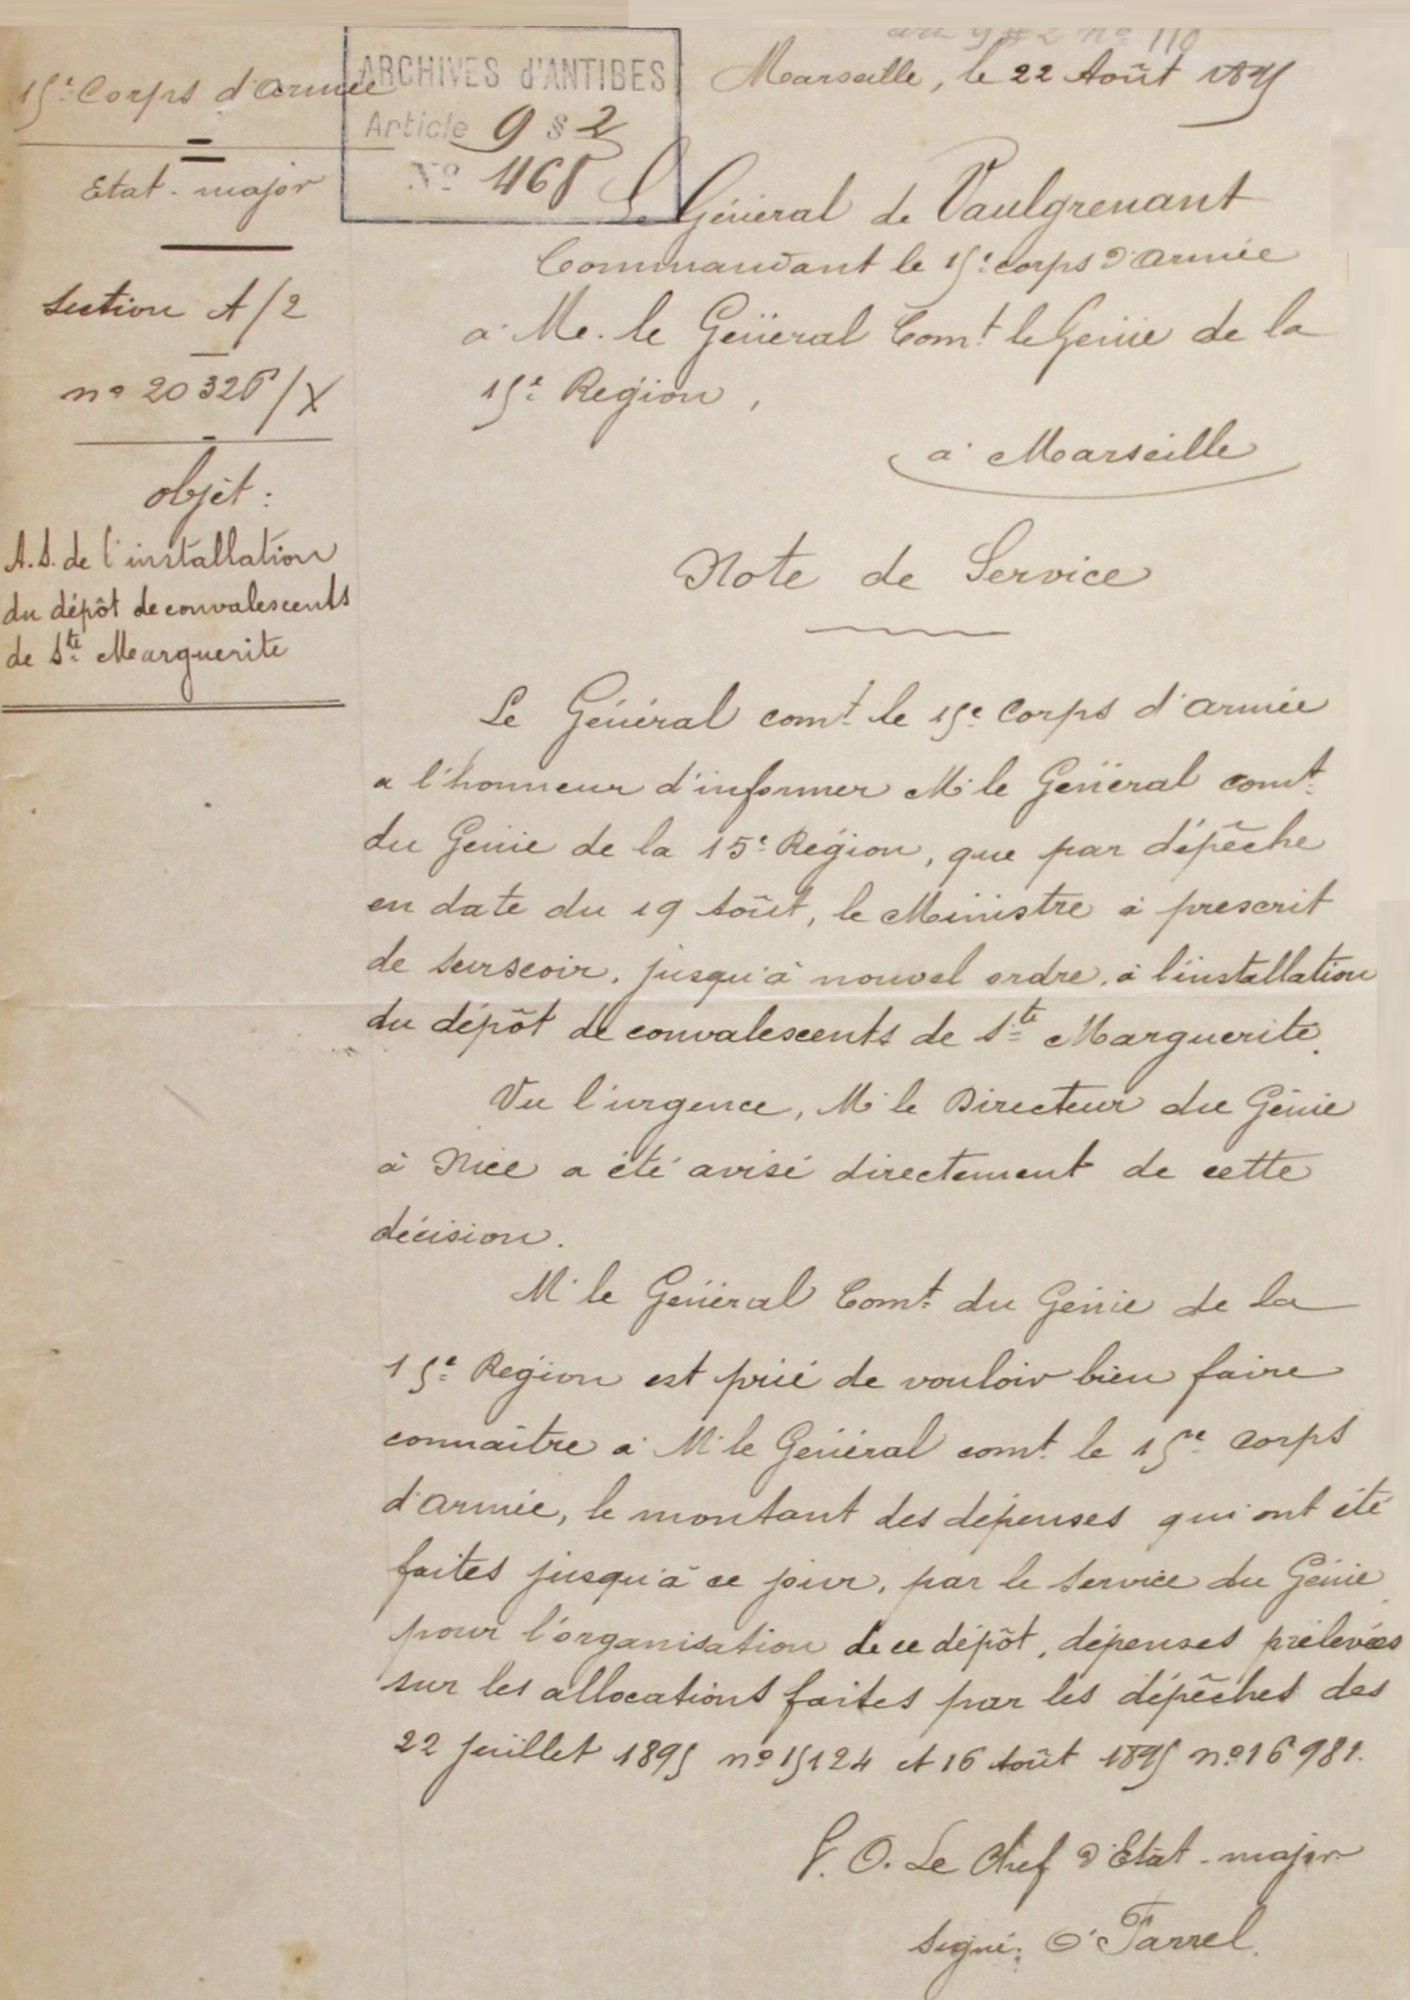 art 9 § 2 no 110
ARCHIVES d'ANTIBES
Article 9 § 2
No 465
15e Corps d'armée
Etat-major
Section A/2
no 20326/X
objèt :
A.S. de l'installation
du dépôt de convalescents
de Ste Marguerite
Marseille, le 22 Août 1895
Le Général de Vaulgrenant
Commandant le 15e corps d'armée
à Mr. le Général Comt le Génie de la
15e Région,
à Marseille
Note de Service
Le Général comt le 15e Corps d'armée
a l'honneur d'informer Mr le Général comt
du Génie de la 15e Région, que par dépêche
en date du 19 Août, le Ministre à prescrit
de surseoir, jusqu'à nouvel ordre, à l'installation
du dépôt de convalescents de Ste Marguerite.
Vu l'urgence, Mr le Directeur du Génie
à Nice a été avisé directement de cette
décision.
Mr le Général Comt du Génie de la
15e Région est prié de vouloir bien faire
connaître à Mr le Général comt le 15e corps
d'armée, le montant des dépenses qui ont été
faites jusqu'à ce jour, par le service du Génie
pour l'organisation de ce dépôt, dépenses prélevées
sur les allocations faites par les dépêches des
22 Juillet 1895 no 15124 et 16 Août 1895 no 16981.
P. O. Le Chef d'Etat-major
Signé: O'Farrel.